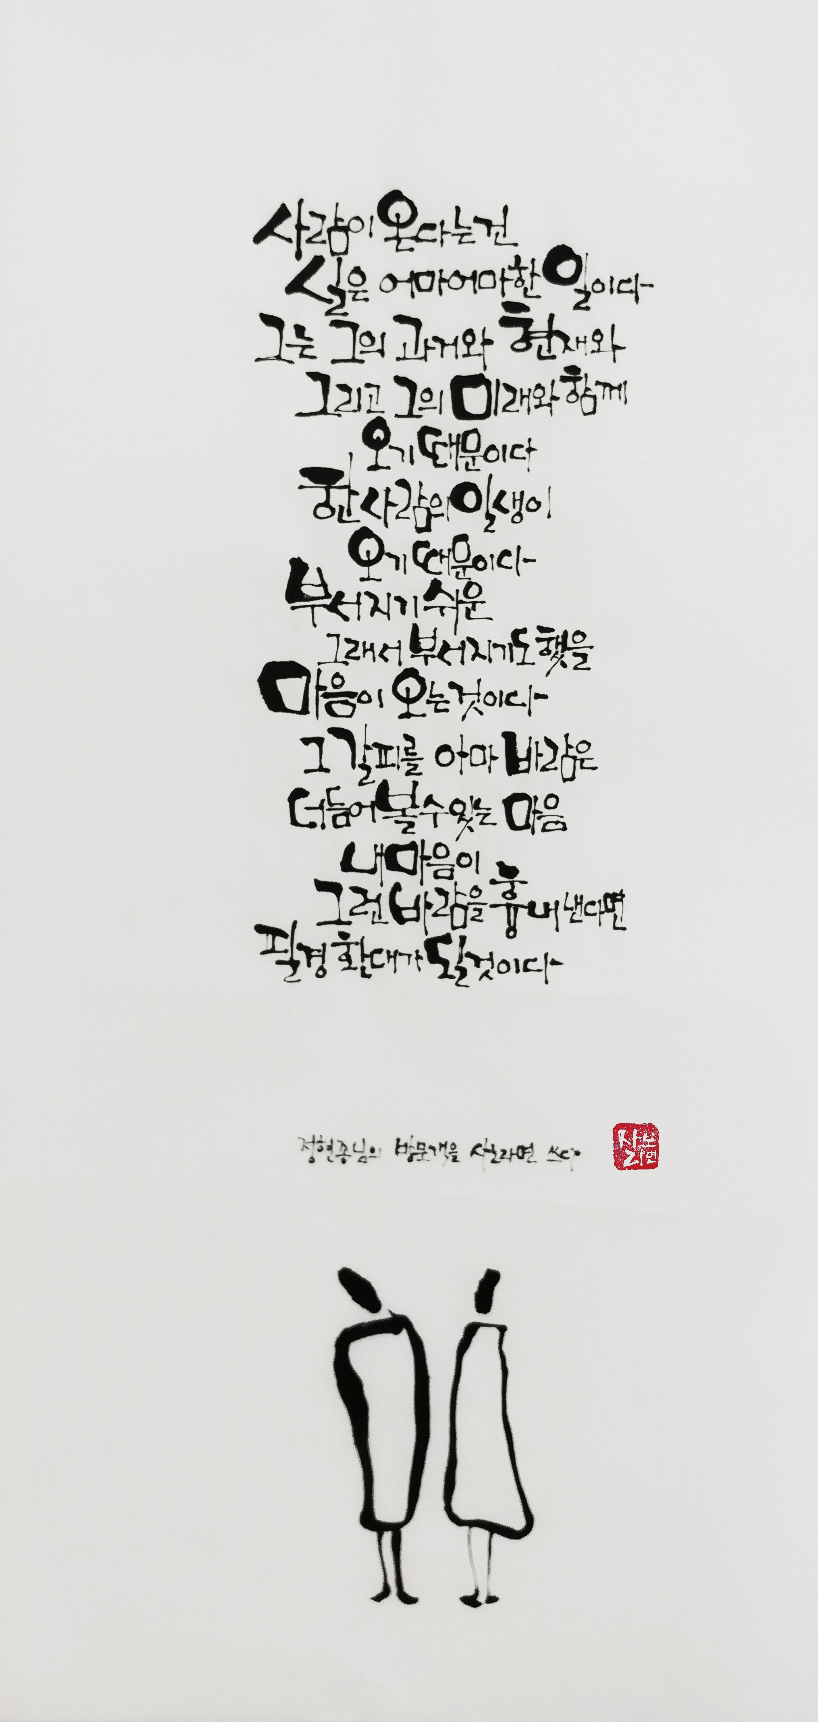 사람이 온다는건
실은 어마어마한 일이다
그는 그의 과거와 현재와
그리고 그의 미래와 함께
오기 때문이다
한 사람의 일생이
오기 때문이다
부서지기 쉬운
그래서 부서지기도 했을
마음이 오는것이다
그 갈피를 아마 바람은
더듬어 볼수있는 마음
내 마음이
그런 바람을 흉내 낸다면
필경 환대가 될것이다
정현종님의 방문객을 쓰다